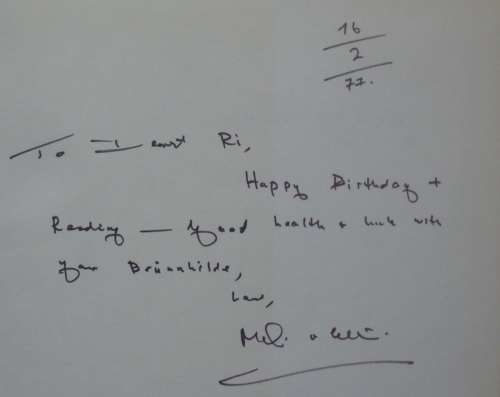 16
2
77.
To Ri,
Happy Birthday +
Reading — Good health & luck with
your Brünnhilde,
Love,